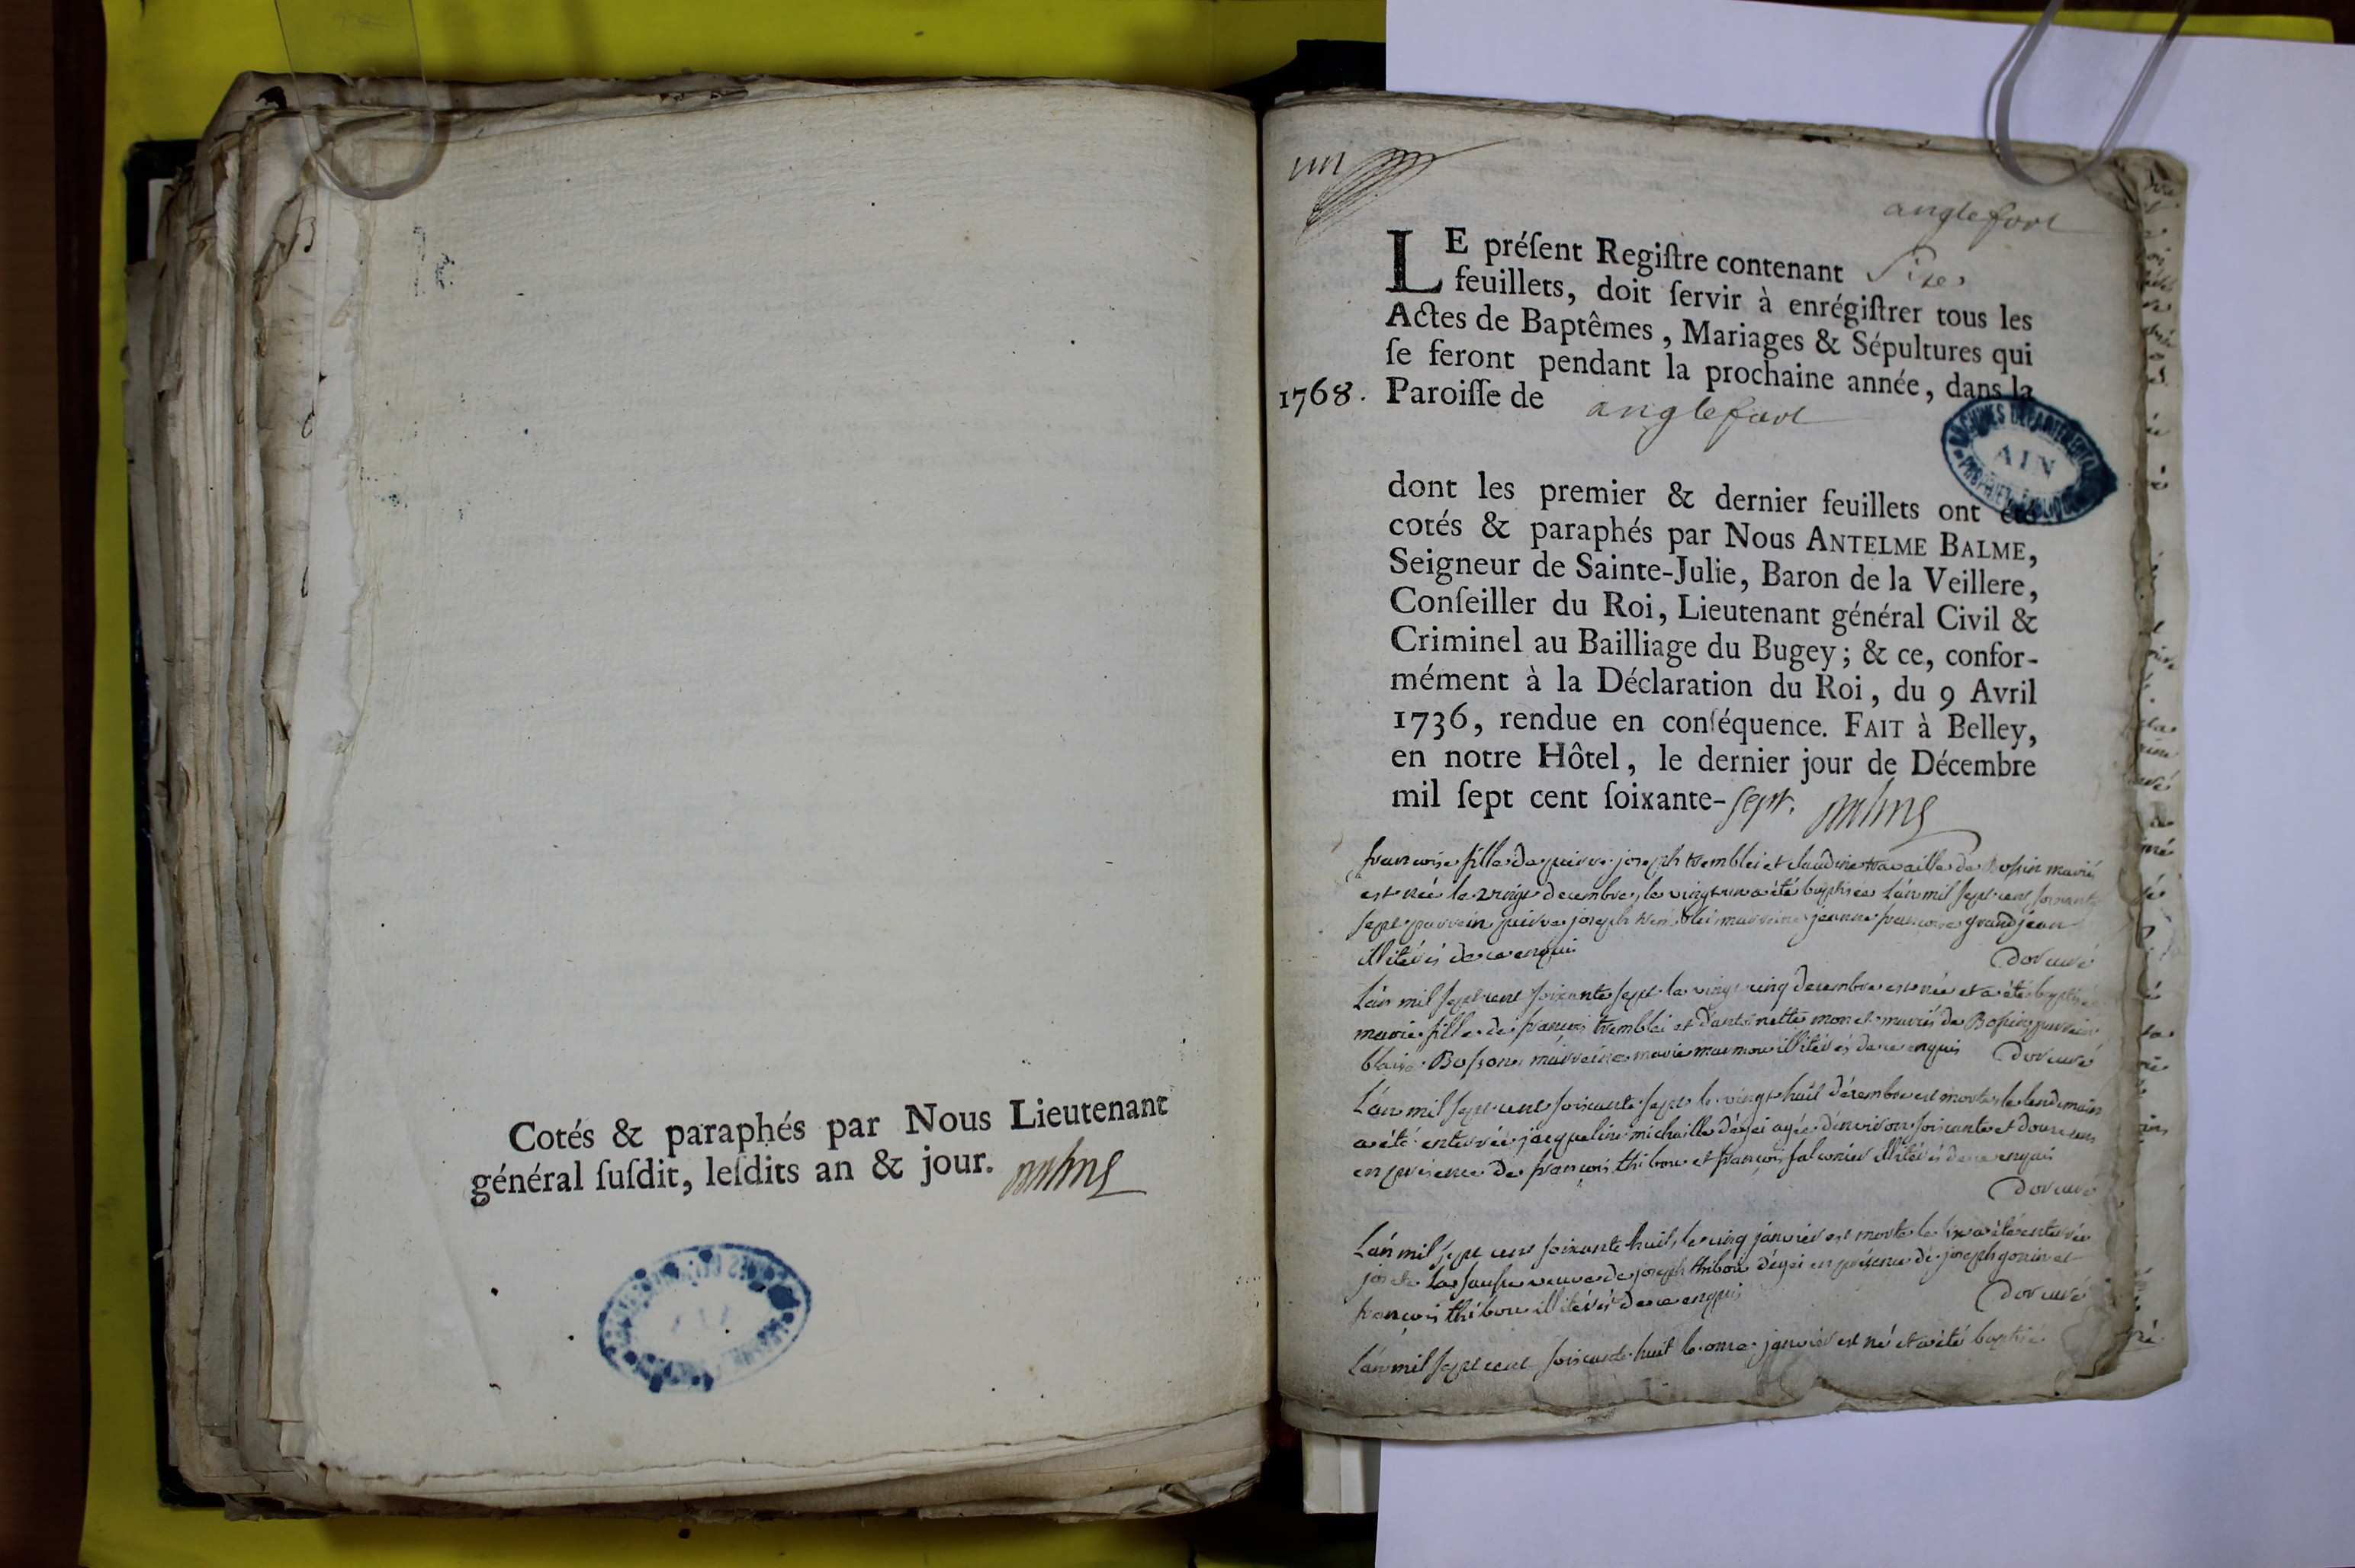 Cotés & paraphés par Nous Lieutenant
général ſuſdit, leſdits an & jour. Balme
un
anglefort
LE préſent Regiſtre contenant Sixe
feuillets, doit ſervir à enrégiſtrer tous les
Actes de Baptêmes, Mariages & Sépultures qui
ſe feront pendant la prochaine année, dans la
1768. Paroiſſe de anglefort
ARCHIVES DEPARTEMENTALES
AIN
dont les premier & dernier feuillets ont été
cotés & paraphés par Nous ANTELME BALME,
Seigneur de Sainte-Julie, Baron de la Veillere,
Conſeiller du Roi, Lieutenant général Civil &
Criminel au Bailliage du Bugey; & ce, confor-
mément à la Déclaration du Roi, du 9 Avril
1736, rendue en conſéquence. FAIT à Belley,
en notre Hôtel, le dernier jour de Décembre
mil ſept cent ſoixante-sept. Balme
francoise fille de pierre joseph tremblei et claudine travaille de Bossin mariés
est née le vingt decembre, le vingt un a été baptisée L'an mil sept cent soixante
sept parrein pierre joseph tremblei marreine jeanne francoise grandjean
illitérés de ce enquis
Dor curé
L'an mil sept cent soixante sept le vingt cinq decembre est née et a été baptisée
marie fille de francois tremblei et d'antoinette monet mariés de Bossin parrein
blaise Bosson marreine marie illitérés de ce enquis Dor curé
L'an mil sept cent soixante sept le vingt huit décembre est morte le lendemain
a été enterrée jacqueline michaille agée d'environ soixante et douze ans
en présence de francois thibou et francois falconier illitérés de ce enquis
Dor curé
L'an mil sept cent soixante huit le cinq janvier est morte le six a été enterrée
la veuve de joseph thibou en présence de joseph gonin et
francois thibou illitérés de ce enquis
Dor curé
L'an mil sept cent soixante huit le onze janvier est né et a été baptisé